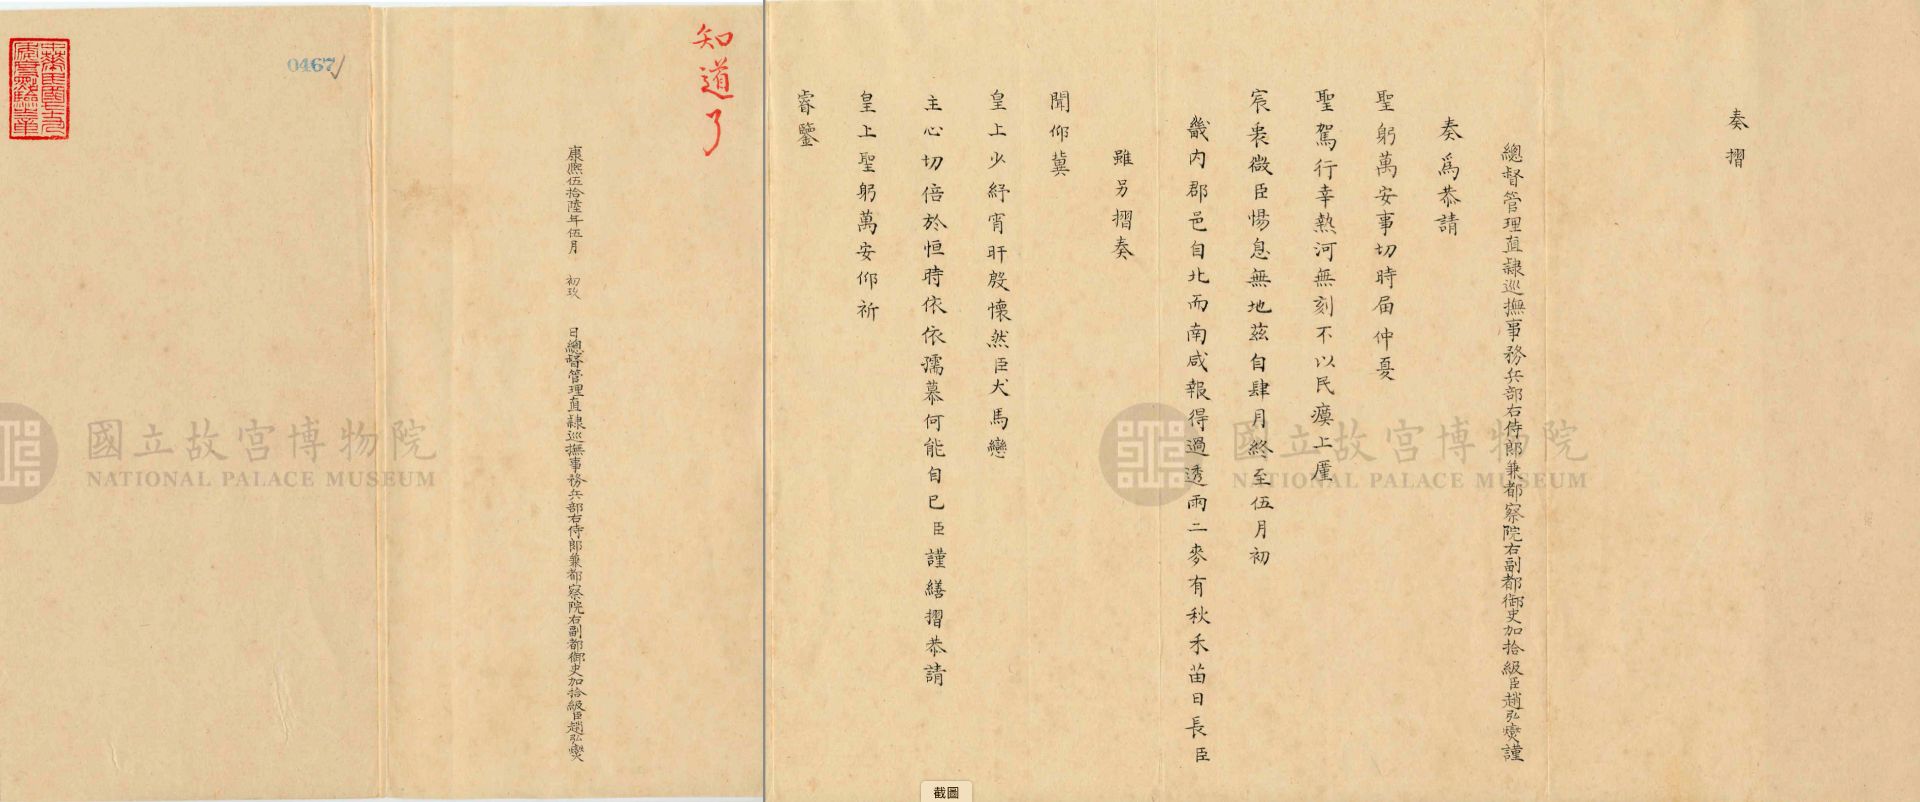 奏摺
總督管理直隸巡撫事務兵部右侍郎兼都察院右副都御史加拾級臣趙弘燮謹
奏爲恭請
聖躬萬安事切時届仲夏
聖駕行幸熱河無刻不以民瘼上厪
宸衷微臣惕息無地茲自肆月終至伍月初
畿内郡邑自北而南咸報得過透雨二麥有秋禾苗日長臣
雖另摺奏
聞仰冀
皇上少紓宵旰殷懷然臣犬馬戀
主心切倍於恒時依依孺慕何能自已臣謹繕摺恭請
皇上聖躬萬安仰祈
睿鑒
知道了
康熙伍拾陸年伍月 初玖 日總督管理直隸巡撫事務兵部右侍郎兼都察院右副都御史加拾級臣趙弘燮
0467
國立故宮博物院
NATIONAL PALACE MUSEUM
國立故宮博物院
NATIONAL PALACE MUSEUM
截圖